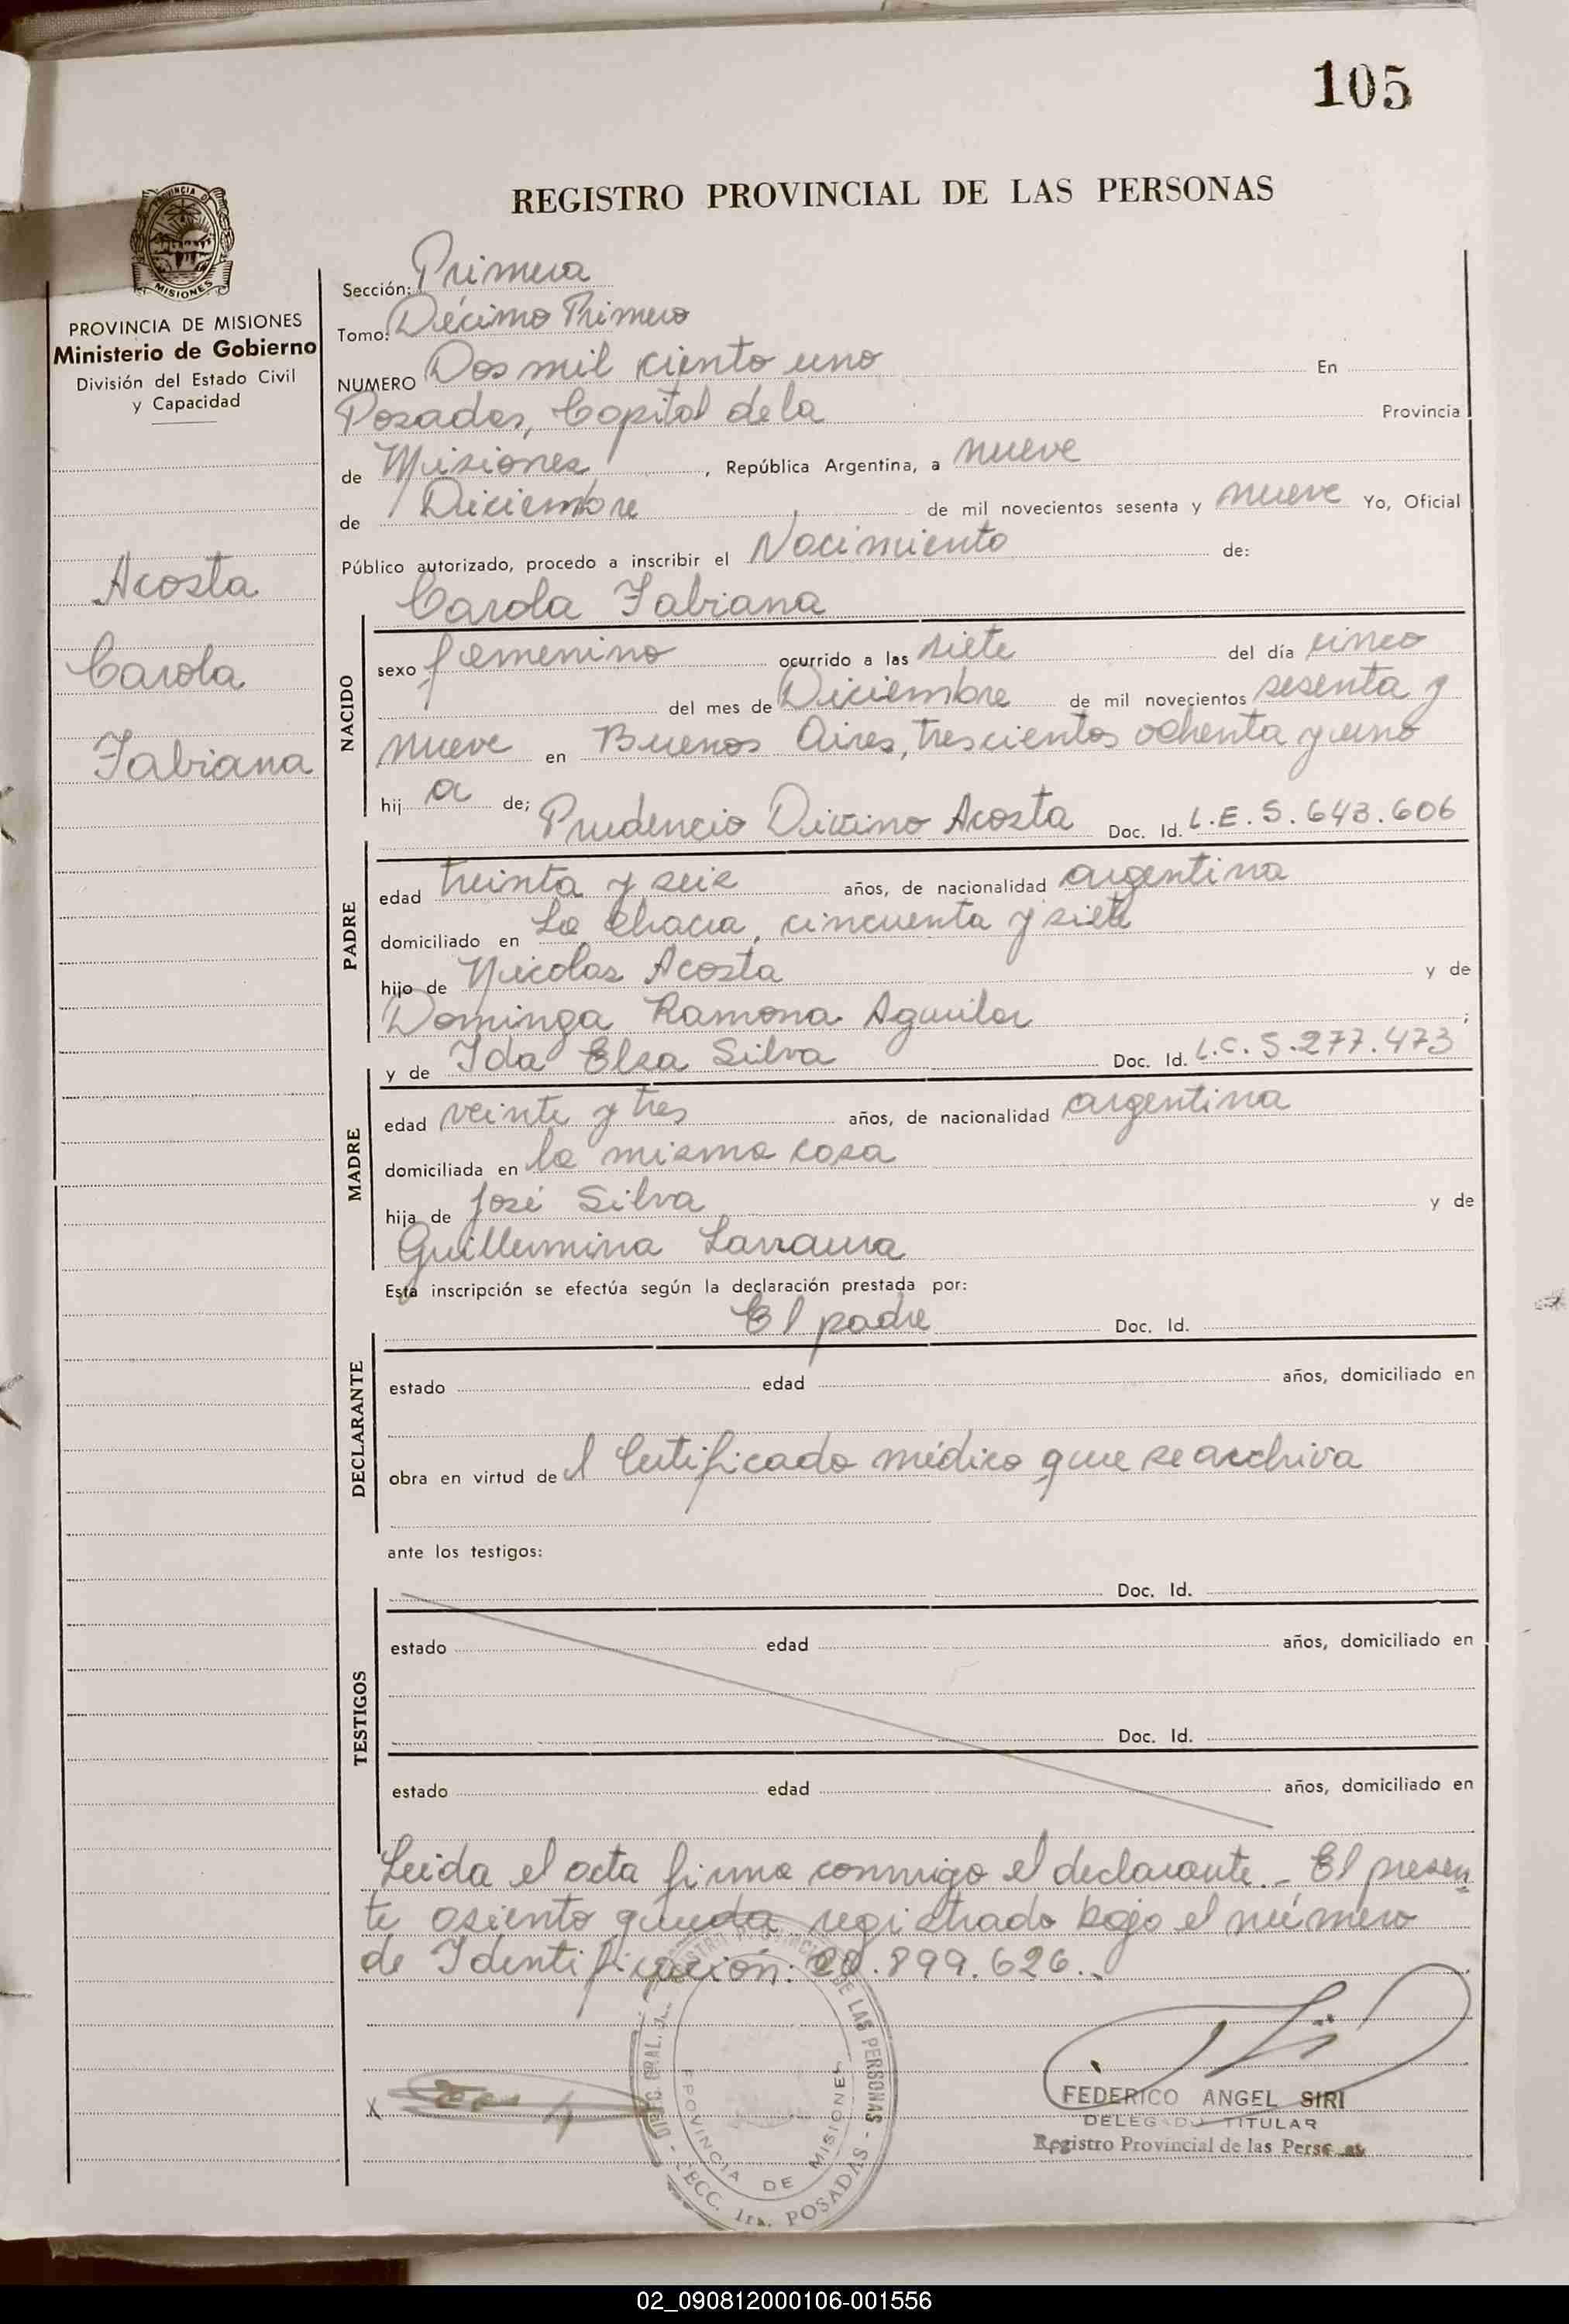 105
REGISTRO PROVINCIAL DE LAS PERSONAS
PROVINCIA DE MISIONES
Ministerio de Gobierno
División del Estado Civil
y Capacidad
Acosta
Carola
Fabiana
Sección: Primera
Tomo: Décimo Primero
NUMERO Dos mil ciento uno En
Posadas, Capital de la Provincia
de Misiones, República Argentina, a nueve
de Diciembre de mil novecientos sesenta y nueve Yo, Oficial
Público autorizado, procedo a inscribir el Nacimiento de:
Carola Fabiana
NACIDO
sexo femenino ocurrido a las siete del día cinco
del mes de Diciembre de mil novecientos sesenta y
nueve en Buenos Aires, trescientos ochenta y uno
hij a de; Prudencio Acosta Doc. Id. L.E. 5.643.606
PADRE
edad treinta y seis años, de nacionalidad argentina
domiciliado en La Chacra, cincuenta y siete
hijo de Nicolas Acosta y de
Dominga Ramona Aguilar ;
y de Ida Elsa Silva Doc. Id. L.C. 5.277.473
MADRE
edad veinte y tres años, de nacionalidad argentina
domiciliada en la misma casa
hija de José Silva y de
Guillermina
Esta inscripción se efectúa según la declaración prestada por:
El padre Doc. Id.
DECLARANTE
estado edad años, domiciliado en
obra en virtud de l Certificado médico que se archiva
ante los testigos:
Doc. Id.
TESTIGOS
estado edad años, domiciliado en
Doc. Id.
estado edad años, domiciliado en
Leida el acta firma conmigo el declarante.- El presen
te asiento queda registrado bajo el número
de Identificación: 20.899.626.-
FEDERICO ANGEL SIRI
DELEGADO TITULAR
Registro Provincial de las Personas
DE LAS PERSONAS
PROVINCIA DE MISIONES
SECC. 1ra. POSADAS
02_090812000106-001556